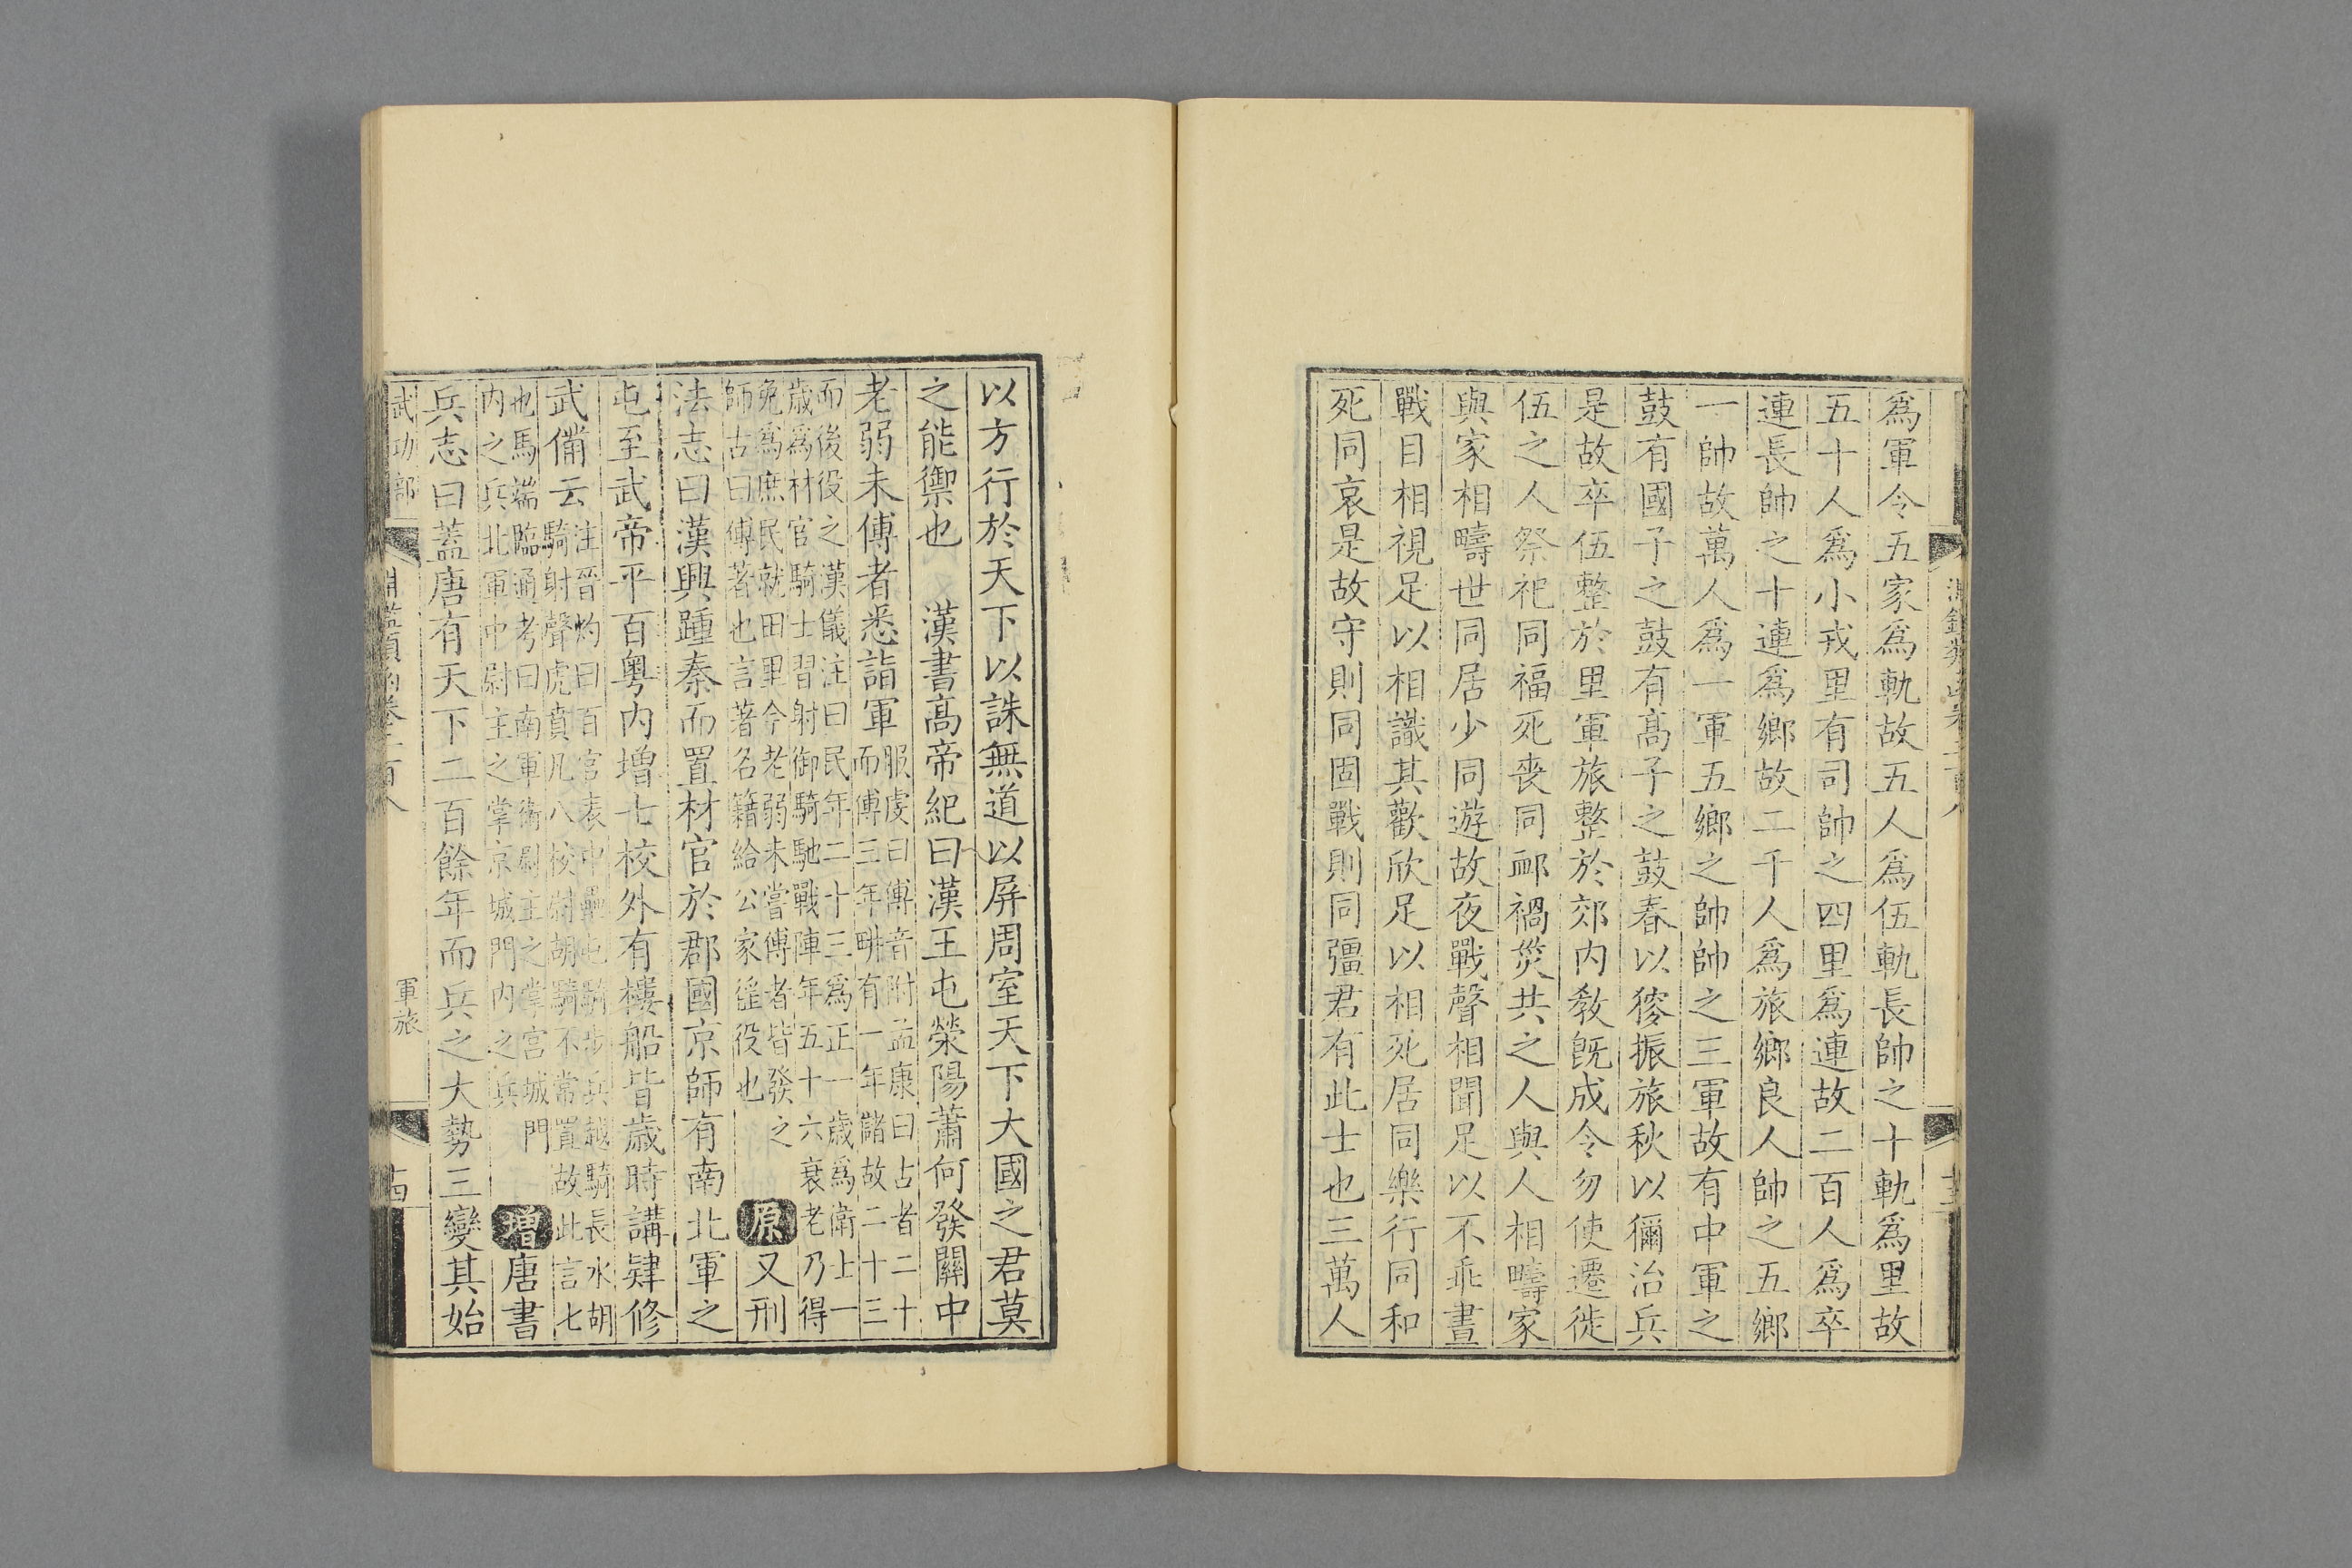 爲軍令五家爲軌故五人爲伍軌長帥之十軌爲里故
五十人爲小戎里有司帥之四里爲連故二百人爲卒
連長帥之十連爲鄉故二千人爲旅鄉良人帥之五鄉
一帥故萬人爲一軍五鄉之帥帥之三軍故有中軍之
鼓有國子之鼓有髙子之鼓春以獀振旅秋以獮治兵
是故卒伍整於里軍旅整於郊内教旣成令勿使遷徙
伍之人祭祀同福死喪同䘏禍烖共之人與人相疇家
與家相疇世同居少同遊故夜戰聲相聞足以不乖晝
戰目相視足以相識其歡欣足以相死居同樂行同和
死同哀是故守則同固戰則同彊君有此士也三萬人
以方行於天下以誅無道以屏周室天下大國之君莫
之能禦也 漢書髙帝紀曰漢王屯滎陽蕭何發關中
老弱未傅者悉詣軍
服虔曰傅音附孟康曰占者二十
而傅三年畊有一年儲故二十三
而後役之漢儀注曰民年二十三爲正一歳爲衛士一
歳爲材官騎士習射御騎馳戰陣年五十六衰老乃得
免爲庶民就田里今老弱未嘗傅者皆發之
師古曰傅著也言著名籍給公家徭役也
原又刑
法志曰漢興踵秦而置材官於郡國京師有南北軍之
屯至武帝平百粤内增七校外有樓船皆歳時講肄修
武備云
注晉灼曰百官表中壘屯騎步兵越騎長水胡
騎射聲虎賁凡八校尉胡騎不常置故此言七
也馬端臨通考曰南軍衛尉主之掌宮城門
内之兵北軍中尉主之掌京城門内之兵
增唐書
兵志曰蓋唐有天下二百餘年而兵之大勢三變其始
武功部
淵鑑類函卷二百八
軍旅
十四